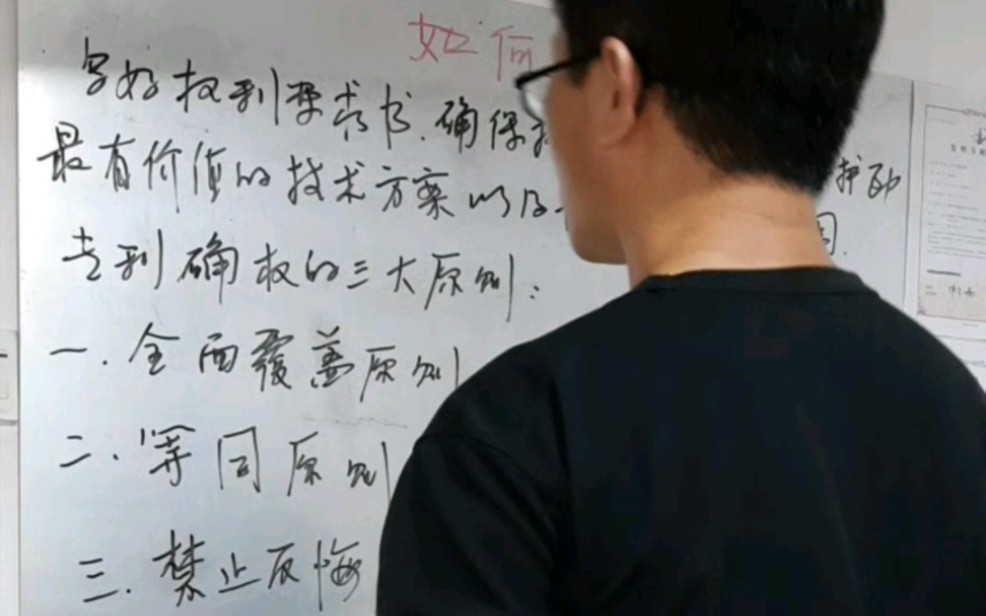 如何
写好权利要求书.确保
最有价值的技术方案以及 护
专利确权的三大原则:
一.全面覆盖原则
二.等同原则
三.禁止反悔